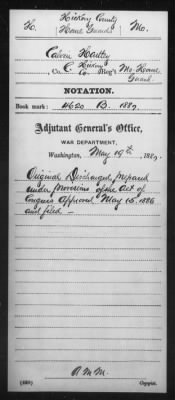 Hickory County
H. Home Guards Mo.
Calvin Hartley
Co. C, Hickory Co. Reg't Mo. Home Guard.
NOTATION.
Book mark: 4620 B. 1887.
Adjutant General's Office,
WAR DEPARTMENT,
Washington, May 19th, 1887.
Original Discharged prepared
under provisions of the Act of
Congress approved May 15, 1886
and filed –
A.M.M.
(689) Copyist.